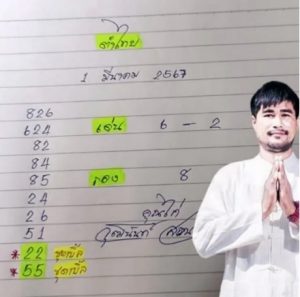 ลำไย
1 มีนาคม 2567
826
624 เด่น 6 - 2
82
84
85 รอง 8
24
26
51
*22 ชุดเบิ้ล
*55 ชุดเบิ้ล